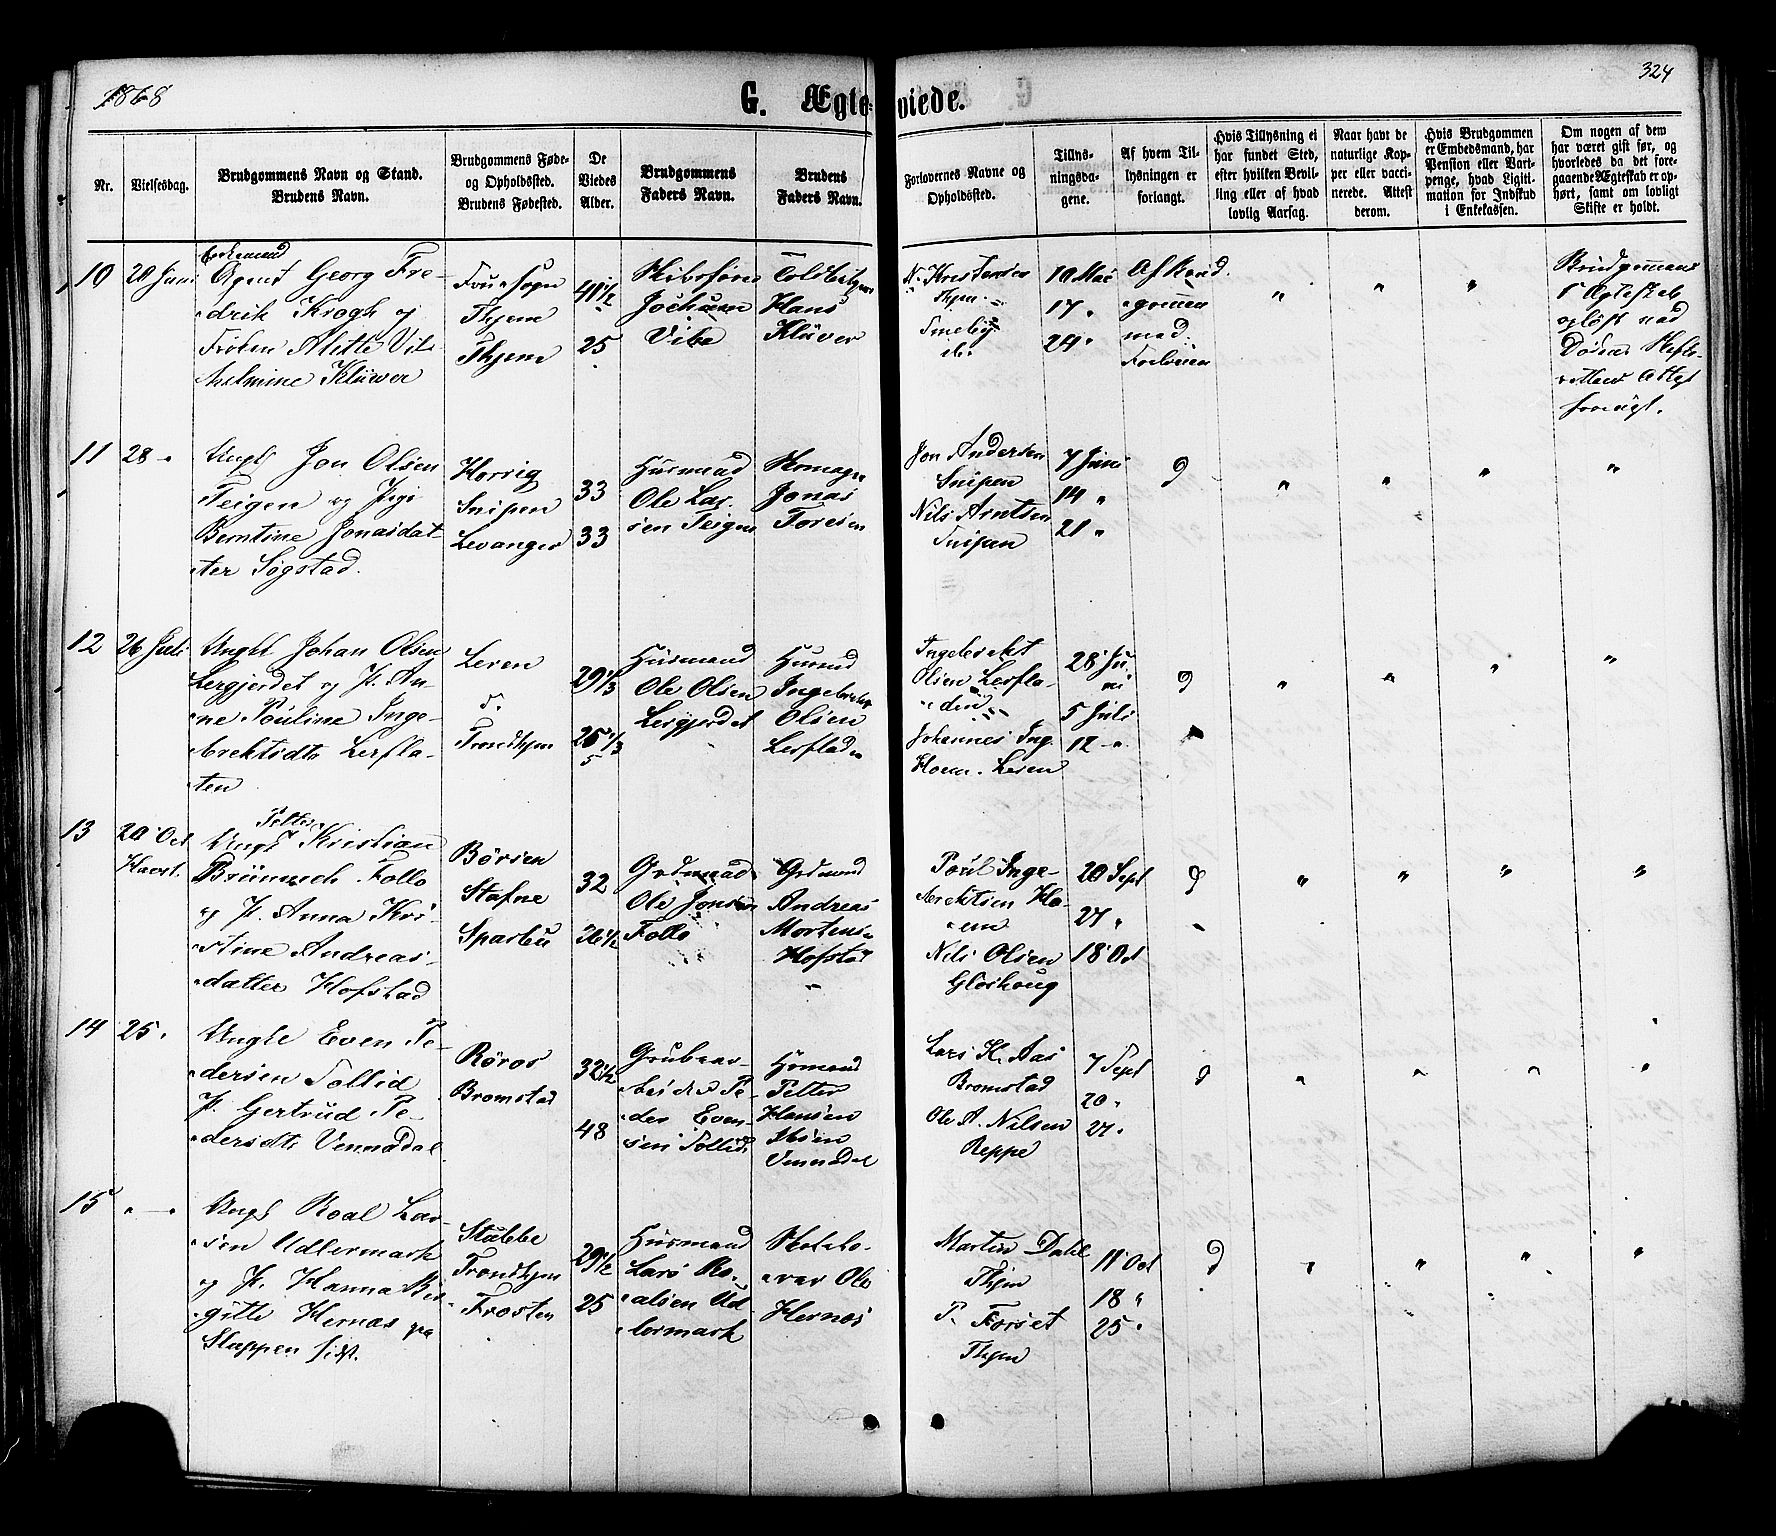 1868
324
G. Ægteviede.
Nr.
Vielsesdag.
Brudgommens Navn og Stand.
Brudens Navn.
Brudgommens Føde-
og Opholdssted.
Brudens Fødested.
De
Viedes
Alder.
Brudgommens
Faders Navn.
Brudens
Faders Navn.
Forlovernes Navne og
Opholdssted.
Tillys-
ningsda-
gene.
Af hvem Til-
lysningen er
forlangt.
Hvis Tillysning ei
har fundet Sted,
efter hvilken Bevil-
ling eller af hvad
lovlig Aarsag.
Naar havt de
naturlige Kop-
per eller vacci-
nerede. Attest
derom.
Hvis Brudgommen
er Embedsmand, har
Pension eller Vart-
penge, hvad Ligiti-
mation for Indskud
i Enkekassen.
Om nogen af dem
har været gift før, og
hvorledes da det fore-
gaaende Ægteskab er op-
hørt, samt om lovligt
Skifte er holdt.
10
Juni
Enkemand
Agent Georg Fre-
drik Krogh og
Frøken Mette Vil-
helmine Klüwer
Sogn
Thjem
Thjem
41 1/2
25
Jochum
Vibe
Hans
Klüver
N. Kristensen
Thjem
10 Mai
17 "
24 "
Af Brud
gommen
med
Forloveren
" " "
Brudgommens
1 Ægteskab
opløst ved
Døden Skifte-
rettens Attest
forevist.
11
28 "
Ungk Jon Olsen
Teigen og Pige
Berntine Jonasdat-
ter Søgstad.
Horrig
Snipen
Levanger
33
33
Husmand
Ole Lar-
sen Teigen
Jonas
Toresen
Jon Andersen
Snipen
Nils Arntsen
Snipen
7 Juni
14 "
21 "
" " " "
12
26 Juli
Ungk Johan Olsen
Lergjerdet og P. An-
ne Pauline Inge-
brektsdtr Lerfla-
ten
Leren
T.
Trondhjem
29 1/3
Husmand
Ole Olsen
Lergjerdet
Husmd
Ingebrekt
Olsen
Lerfladen
Ingebrekt
Olsen Lerfla-
den
Johannes Ing.
Hoem. Leren
28 Ju-
ni
5 Juli
12 "
" " " "
13
20 Oct
Ungk Petter Kristian
Brünnech Follo
og P. Anna Kri-
stine Andreas-
datter Hofstad
Børsen
Stafne
Sparbu
32
26 1/2
Grdmand
Ole Jonsen
Follo
Grdmand
Andreas
Mortens
Hofstad
Poul Inge-
brektsen Ho-
em
Nils Olsen
Gløshoug
20 Sept
27 "
18 Oct
" " " "
14
25 "
Ungk Even Pe-
dersen Tollid
P. Gertrud Pe-
dersdtr Vennadal
Røros
Bromstad
32 1/2
48
Grubear-
beider Pe-
der Even-
sen Tollid
Husmand
Petter
Hansen
Vennadal
Lars H. Aas
Bromstad
Ole A. Nilsen
Reppe
7 Sept
20 "
27 "
" " " "
15
" "
Ungk Roal Lar-
sen Udlermark
og P. Hanna Bir-
gitte Hernæs paa
Slappen
Stubbe
Trondhjem
Frosten
29 1/2
25
Husmand
Lars Ro-
alsen Ud-
lermark
Ole
Hernes
Martin Dahl
Thjem
P. Forset
Thjem
11 Oct
18 "
25 "
" " " "